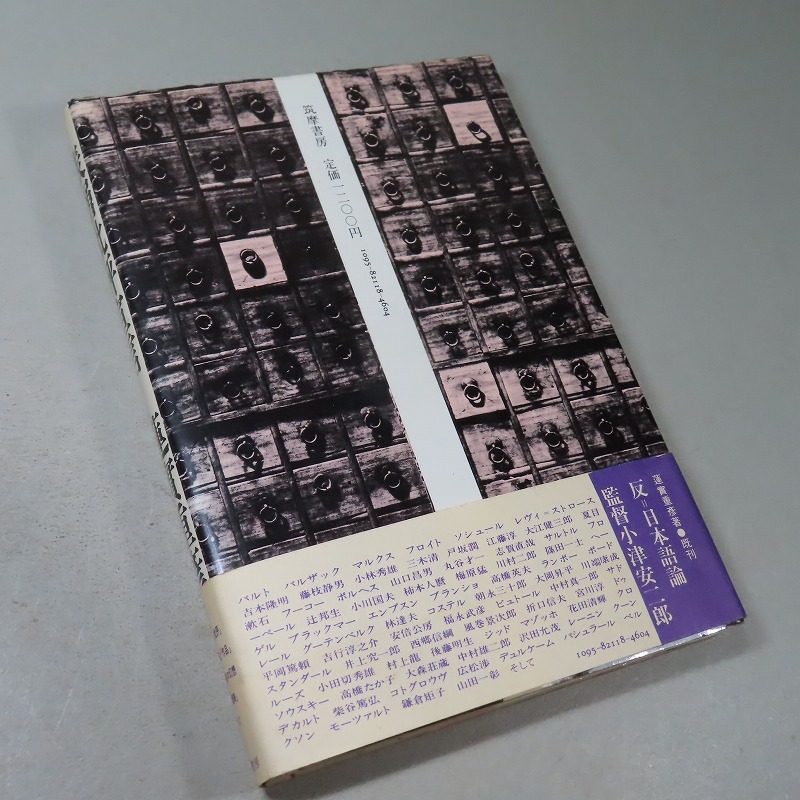 筑摩書房 定価一二〇〇円 1095-82118-4604
蓮實重彥著●既刊
反=日本語論
監督小津安二郎
バルト バルザック マルクス フロイト ソシュール レヴィ=ストロース
吉本隆明 藤枝静男 小林秀雄 三木清 戸坂潤 江藤淳 大江健三郎 夏目
漱石 フーコー ボルヘス 山口昌男 丸谷才一 志賀直哉 サルトル フロ
ーベール 辻邦生 小川国夫 柿本人麿 梅原猛 川村二郎 篠田一士 ヘー
ゲル ブラックマー エンプスン ブランショ 高橋英夫 ランボー ボード
レール グーテンベルク 林達夫 コステル 朝永三十郎 大岡昇平 川端康成
平岡篤頼 吉行淳之介 安倍公房 福永武彦 ビュトール 中村真一郎 サド
スタンダール 井上究一郎 西郷信綱 風巻景次郎 折口信夫 宮川淳 ドゥ
ルーズ 小田切秀雄 村上龍 後藤明生 ジッド マゾッホ 花田清輝 クロ
ソウスキー 高橋たか子 大森荘蔵 中村雄二郎 沢田允茂 レーニン クーン
デカルト 柴谷篤弘 コトグロウヴ 広松渉 デュルケーム バシュラール ベル
クソン モーツァルト 鎌倉矩子 山田一彰 そして
1095-82118-4604